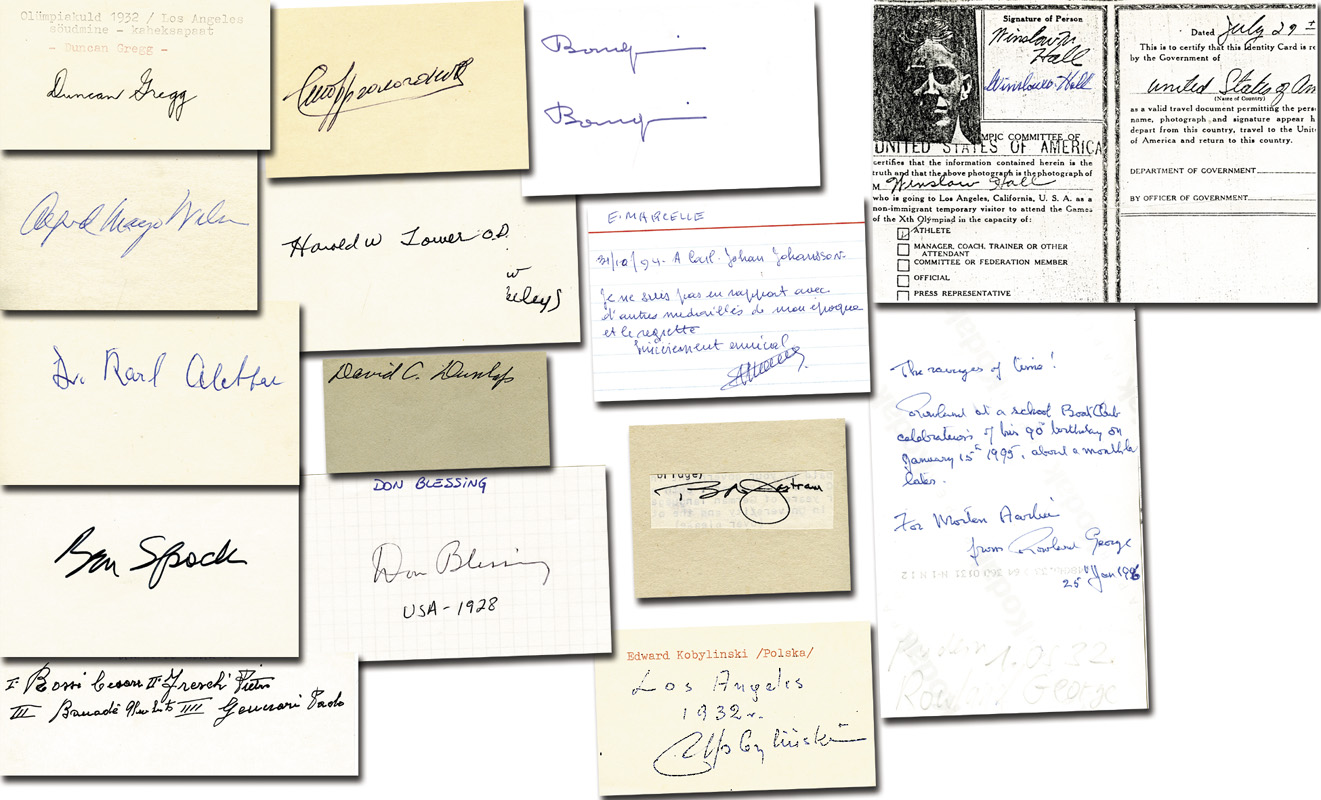 Olümpiakuld 1932 / Los Angeles
sõudmine - kaheksapaat
- Duncan Gregg -
Duncan Gregg
Alfred Mayo
Harold W Tower O.D.
W
Dr. Karl
David C. Dunlap
Ben Spock
DON BLESSING
Don Blessing
USA-1928
I° Rossi Cesare II° Freschi Pietro
III
E. MARCELLE
31/10/94. A Carl. Johan Johansson.
Je ne suis pas en rapport avec
d'autres médaillés de mon époque
et le regrette
Sincèrement amical
bridge,
Edward Kobylinski /Polska/
Los Angeles
1932r.
Kobyliński
Signature of Person
Winslow
Hall
Winslow Hall
MPIC COMMITTEE OF
UNITED STATES OF AMERICA
certifies that the information contained herein is the
truth and that the above photograph is the photograph of
M Winslow Hall
who is going to Los Angeles, California, U. S. A. as a
non-immigrant temporary visitor to attend the Games
of the Xth Olympiad in the capacity of:
ATHLETE
MANAGER, COACH, TRAINER OR OTHER
ATTENDANT
COMMITTEE OR FEDERATION MEMBER
OFFICIAL
PRESS REPRESENTATIVE
Dated July 29
This is to certify that this Identity Card is re
by the Government of
United States of Am
(Name of Country)
as a valid travel document permitting the pers
name, photograph and signature appear h
depart from this country, travel to the Unit
of America and return to this country.
DEPARTMENT OF GOVERNMENT
BY OFFICER OF GOVERNMENT
The ravages of time!
Rowland at a school Boat Club
celebration of his 90th birthday on
January 15th 1995, about a month
later.
For Morten
from Rowland George
25 Jan 1996
1.0532
Rowland George